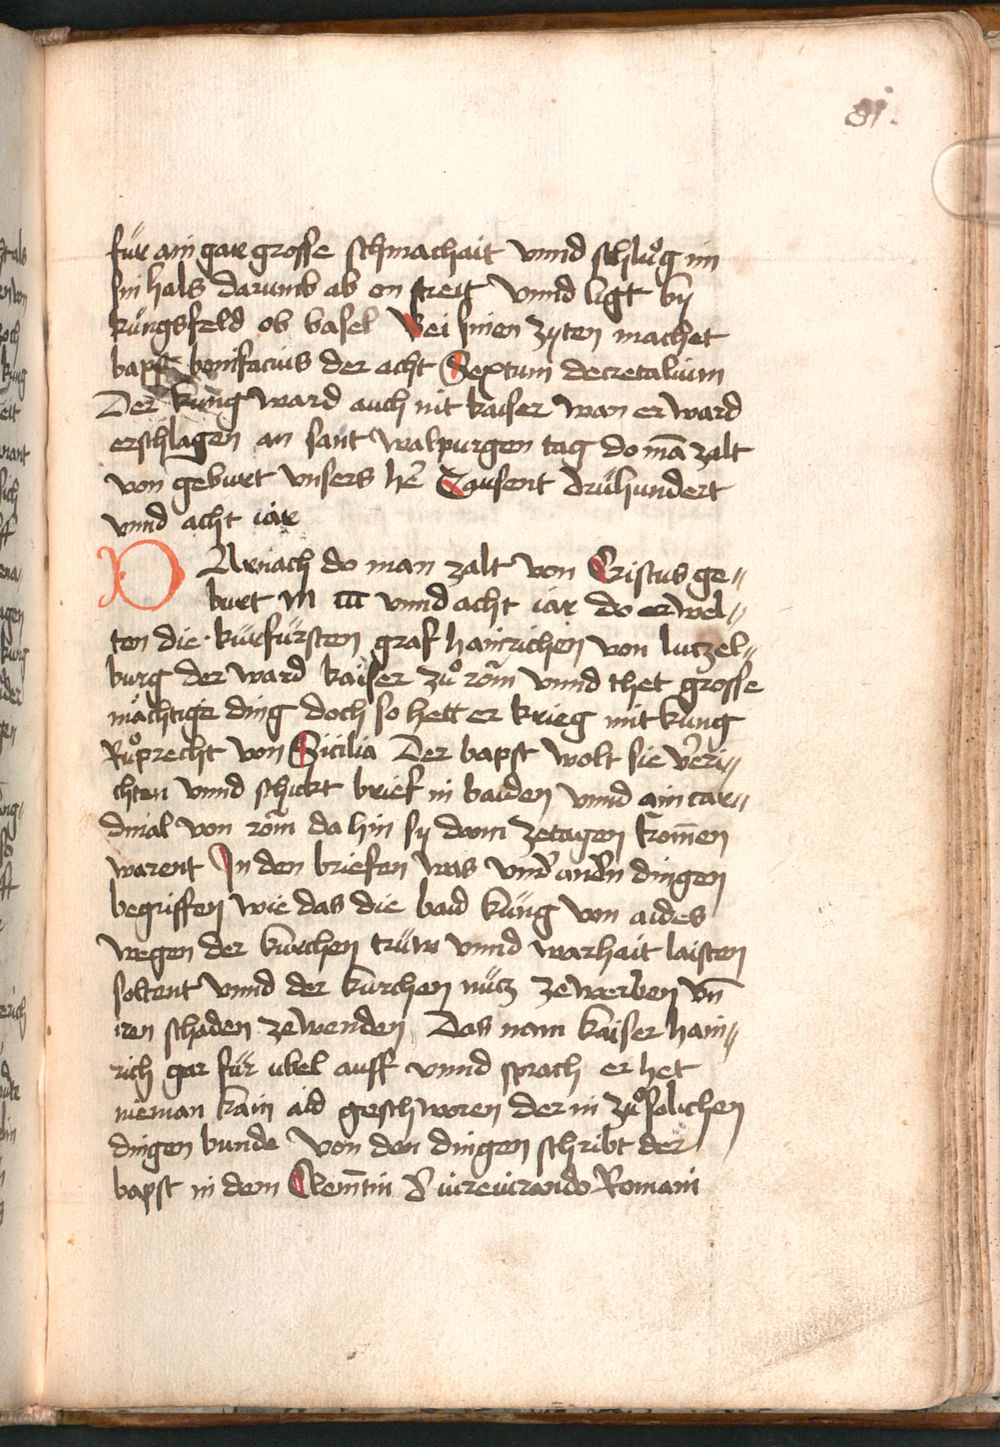 81.
für ain gar grosse schmachait vnnd schlůg im
sin hals darumb ab on streit vnnd ligt bÿ
küngsfeld ob basel Bei sinen zÿten machet
bapst bonifacius der acht Sextum decretalium
Der küng ward auch nit kaiser wan er ward
erschlagen an sant walpurgen tag do mā zalt
von geburt vnsers he᷑ Tausent drühundert
vnnd acht iar
DArnach do man zalt von Cristus ge〃
burt m ccc vnnd acht iar do erwel〃
ten die kürfürsten graf hainrichen von lutzel〃
burg der ward kaiser zů rom̄ vnnd thet grosse
mächtige ding doch so hett er krieg mit küng
Růprecht von Sicilia Der bapst wolt sie v᷑eri〃
chten vnnd schickt brief in baiden vnnd ain car〃
dinal von rom̄ da hin sÿ dann zetagen kom̄en
warent In den briefen was vnd᷑ and᷑n dingen
begriffen wie das die baid küng von aides
wegen der kirchen trüw vnnd warhait laisten
soltent vnnd der kirchen nütz zewerben vn̄
iren schaden zewenden Das nam kaiser hain〃
rich gar für übel auff vnnd sprach er het
nieman kain aid geschworen der in zů solichen
dingen bunde Von den dingen schribt der
bapst in dem Clemētin D᷑ iureiurando Romani